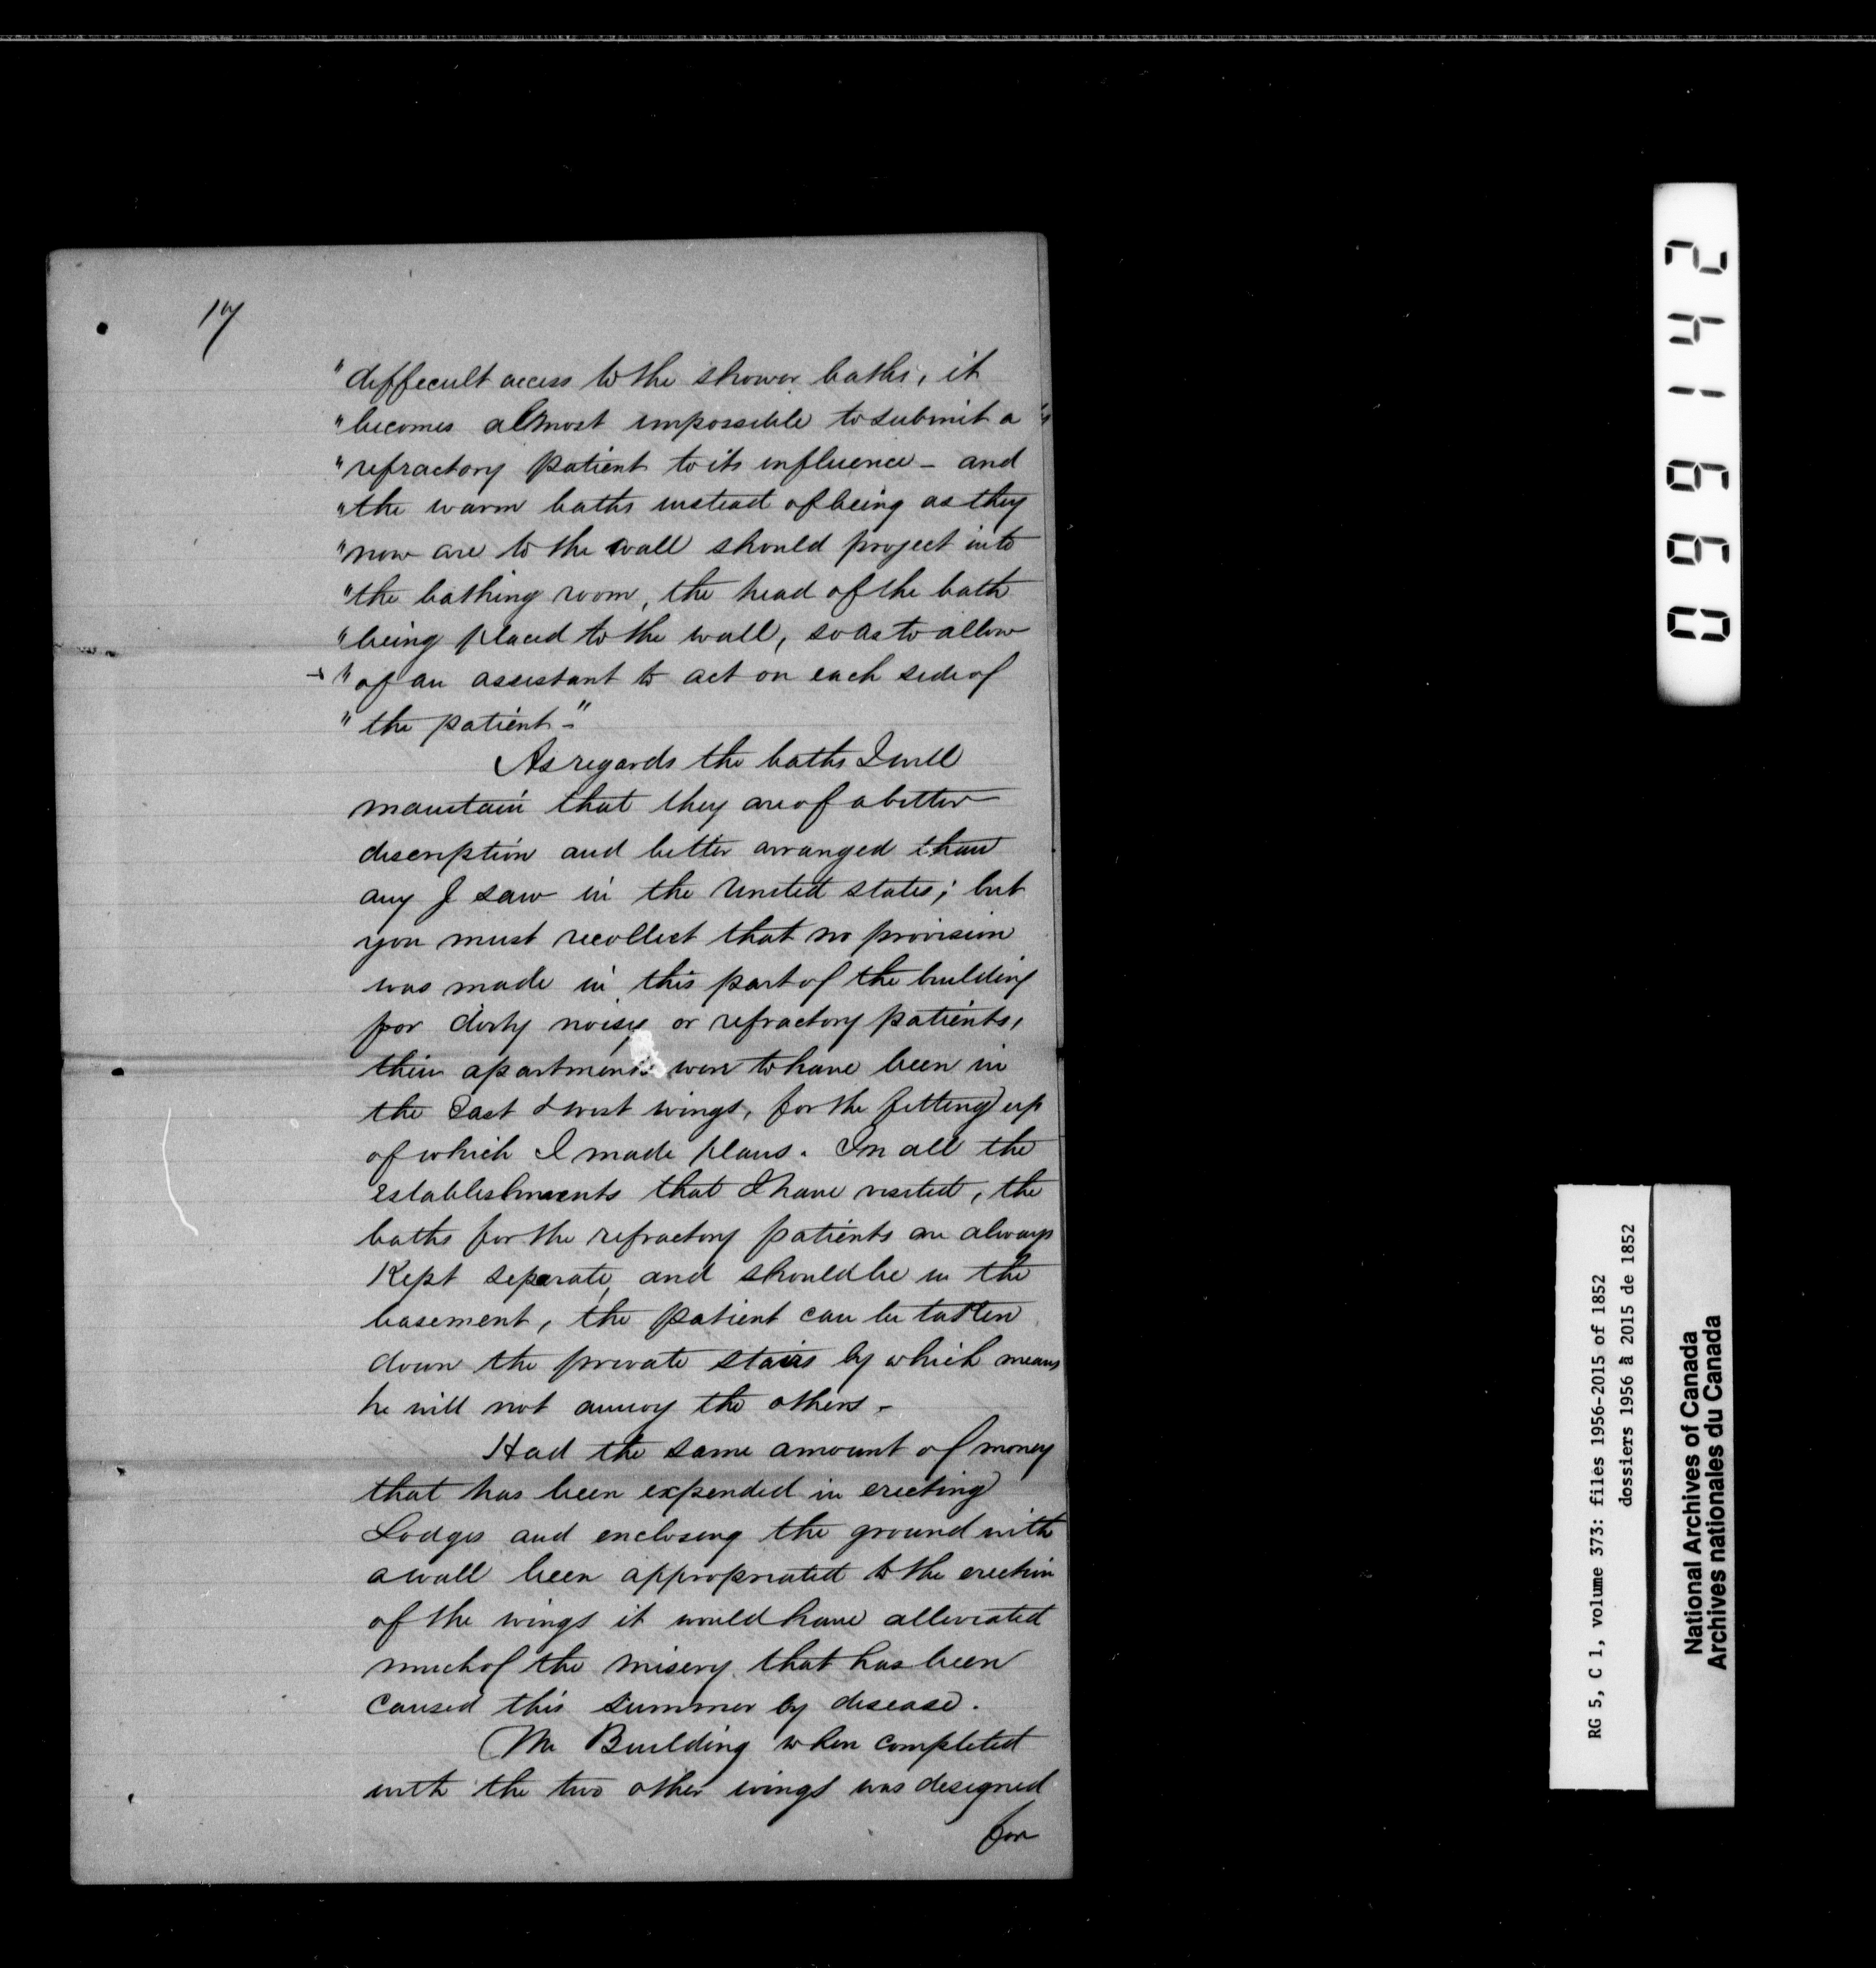 17
"difficult access to the shower baths, it
"becomes almost impossible to submit a
"refractory patient to its influence - and
"the warm baths instead of being as they
"now are to the wall should project into
"the bathing room, the head of the bath
"being placed to the wall, so as to allow
"of an assistant to act on each side of
"the patient -"
As regards the baths I will
maintain that they are of a better
description and better arranged than
any I saw in the United States; but
you must recollect that no provision
was made in this part of the building
for dirty noisy or refractory patients,
their apartments were to have been in
the East & West wings, for the fitting up
of which I made plans. In all the
Establishments that I have visited, the
baths for the refractory patients are always
Kept separate, and should be in the
basement, the patient can be taken
down the private stairs by which means
he will not annoy the others -
Had the same amount of money
that has been expended in erecting
Lodges and enclosing the ground with
a wall been appropriated to the erection
of the wings it would have alleviated
much of the misery that has been
caused this summer by disease.
The Building when completed
with the two other wings was designed
for
099142
RG 5, C 1, volume 373: files 1956-2015 of 1852
dossiers 1956 à 2015 de 1852
National Archives of Canada
Archives nationales du Canada